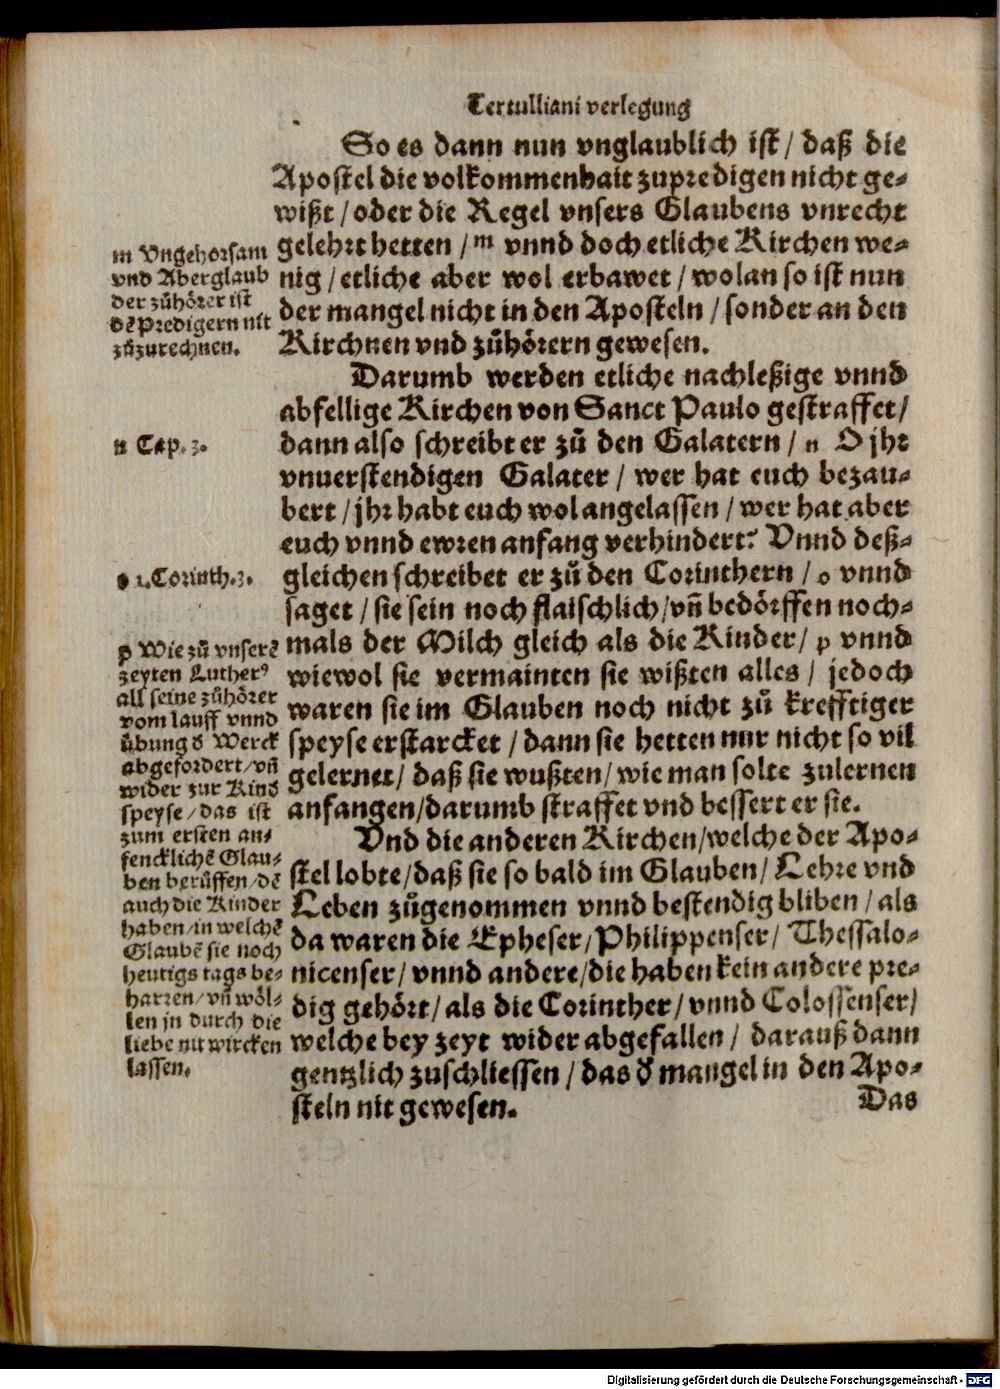 Tertulliani verlegung
So es dann nun vnglaublich ist / daß die
Apostel die volkommenhait zupredigen nicht ge-
wißt / oder die Regel vnsers Glaubens vnrecht
gelehrt hetten / m vnnd doch etliche Kirchen we-
nig / etliche aber wol erbawet / wolan so ist nun
der mangel nicht in den Aposteln / sonder an den
Kirchnen vnd zůhörern gewesen.
Darumb werden etliche nachleßige vnnd
abfellige Kirchen von Sanct Paulo gestraffet /
dann also schreibt er zů den Galatern / n O jhr
vnuerstendigen Galater / wer hat euch bezau-
bert / jhr habt euch wol angelassen / wer hat aber
euch vnnd ewren anfang verhindert? Vnnd deß-
gleichen schreibet er zů den Corinthern / o vnnd
saget / sie sein noch flaischlich / vñ bedörffen noch-
mals der Milch gleich als die Kinder / p vnnd
wiewol sie vermainten sie wißten alles / jedoch
waren sie im Glauben noch nicht zů krefftiger
speyse erstarcket / dann sie hetten nur nicht so vil
gelernet / daß sie wußten / wie man solte zulernen
anfangen / darumb straffet vnd bessert er sie.
Vnd die anderen Kirchen / welche der Apo-
stel lobte / daß sie so bald im Glauben / Lehre vnd
Leben zůgenommen vnnd bestendig bliben / als
da waren die Epheser / Philippenser / Thessalo-
nicenser / vnnd andere / die haben kein andere pre-
dig gehört / als die Corinther / vnnd Colossenser /
welche bey zeyt wider abgefallen / darauß dann
gentzlich zuschliessen / das d̕ mangel in den Apo-
steln nit gewesen.
Das
m Vngehorsam
vnd Aberglaub
der zůhörer ist
dẽ Predigern nit
zůzurechnen.
n Cap. 3.
o 1. Corinth. 3.
p Wie zů vnserẽ
zeyten Lutherꝰ
all seine zůhörer
vom lauff vnnd
übung d̕ Werck
abgefordert / vñ
wider zur Kind
speyse / das ist
zum ersten an-
fencklichẽ Glau-
ben berůffen / dẽ
auch die Kinder
haben / in welchẽ
Glaubẽ sie noch
heutigs tags be-
harren / vñ wöl-
len jn durch die
liebe nit wircken
lassen.
Digitalisierung gefördert durch die Deutsche Forschungsgemeinschaft - DFG